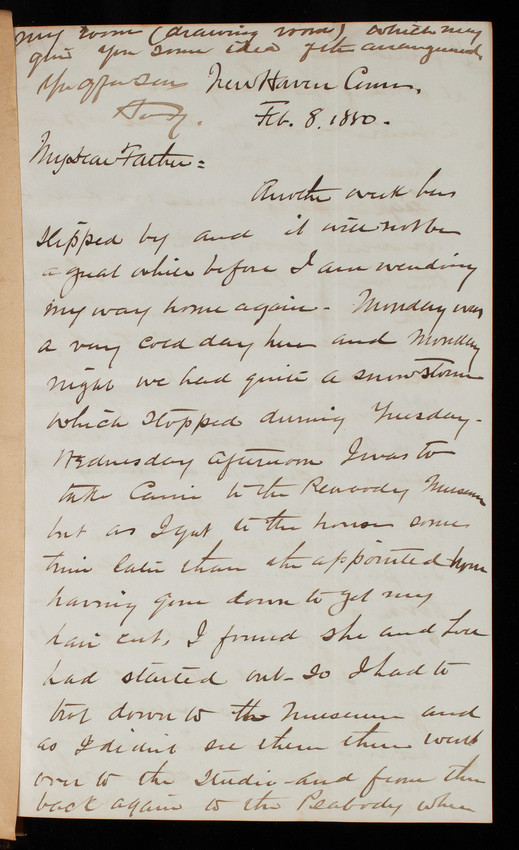 my room (drawing room) which may
give you some idea of the arrangement
Yr aff son New Haven Conn.
Harry. Feb. 8. 1880.
My Dear Father =
Another week has
slipped by and it will not be
a great while before I am wending
my way home again - Monday was
a very cold day here and Monday
night we had quite a snow storm
which stopped during Tuesday -
Wednesday afternoon I was to
take Carrie to the Peabody Museum
but as I got to the house some
time later than the appointed hour
having gone down to get my
hair cut, I found she and Lou
had started out - So I had to
trot down to the Museum and
as I didn't see them there went
over to the Studio - and from there
back again to the Peabody when